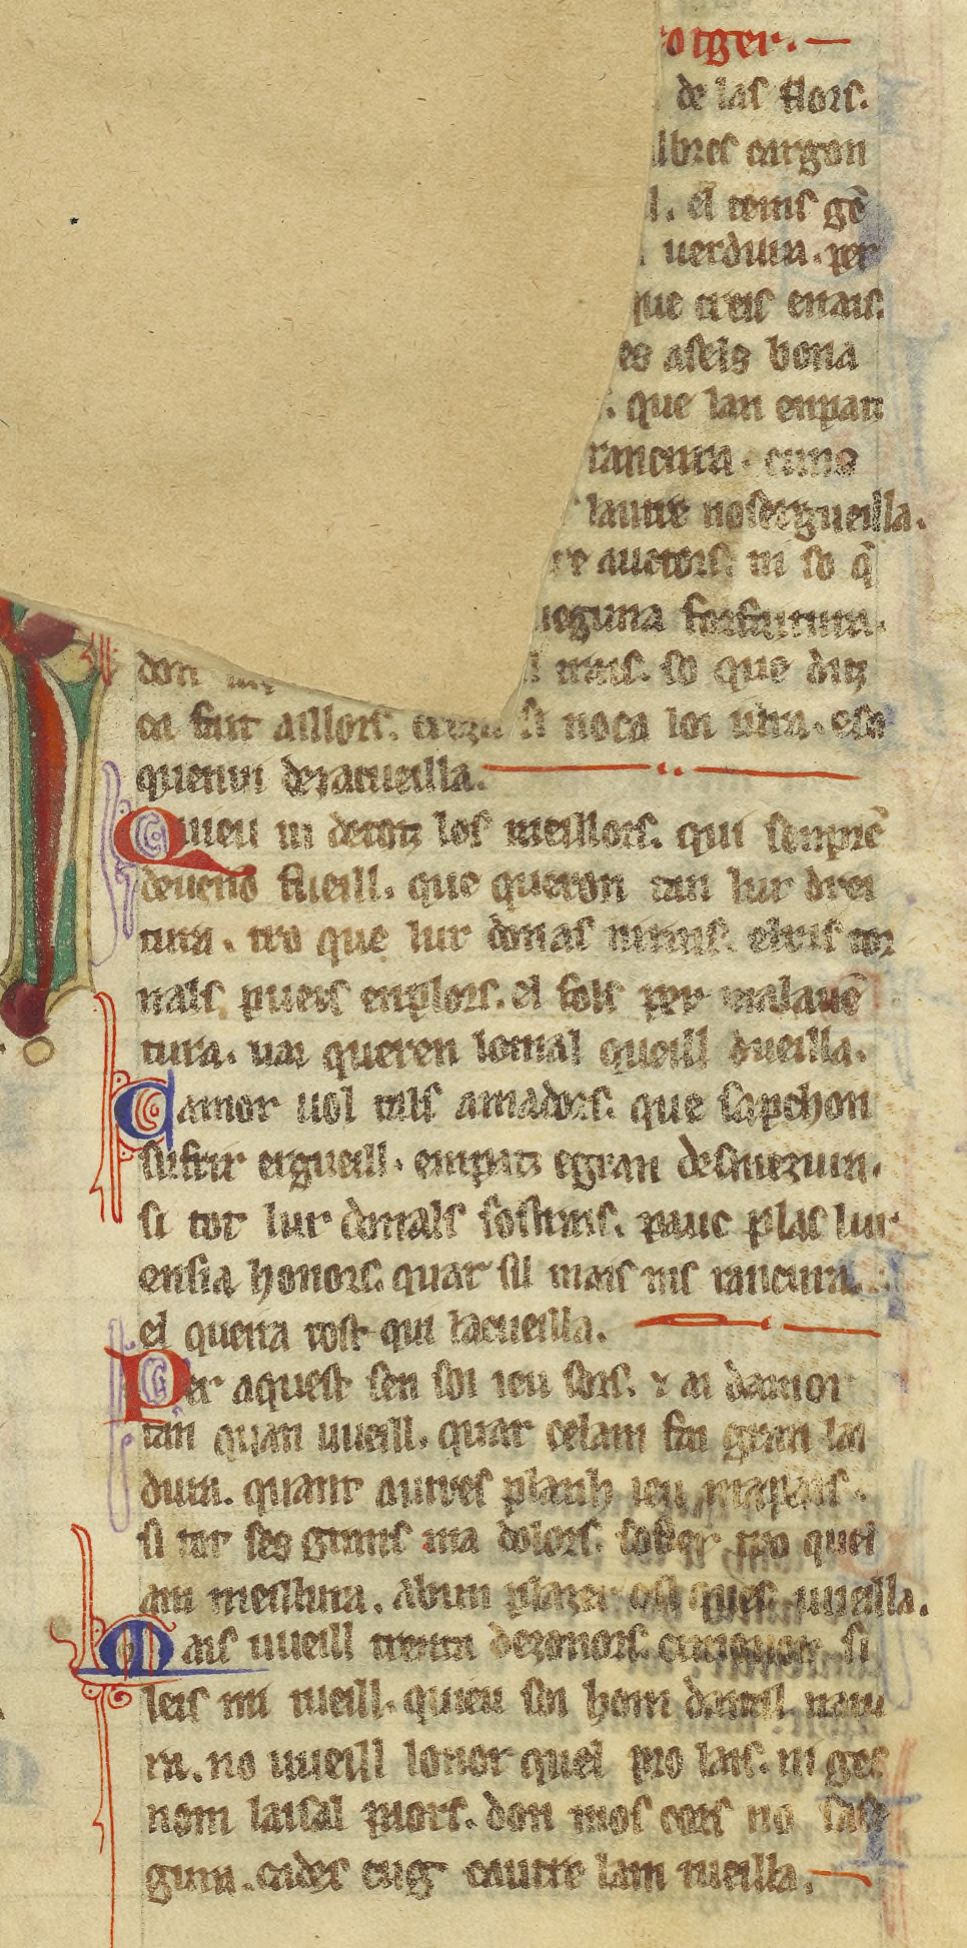 orger.
de las flors.
lbres cargon
l. el tems gē
uerdura. per
que creis enais.
es asels bona
. que lan enpatz
rancura. cuns
lautre nosecgueilla.
re auctors. ni so q̄
neguna forfaitura.
don l mais. so que ditz
ca fait aillors. si noca loi ura. eso
quenui dezacueilla.
Quieu ui detotz los meillors. qui senprē
deuens fueill. que queron tan lur drei
tura. tro que lur domas nirais. elris tor
nals pueis enplors. el fols per malauē
tura. uai queren lomal queill dueilla.
Camor uol tals amadors. que sapchon
sufrir ergueill. enpatz egran desmezura.
si tot lur domals sostrais. pauc plas lur
ensia honors. quar sil mais nis rancura.
el quera tost qui lacueilla.
Per aquest sen soi ieu sors. & ai damor
tan quan uueill. quar celam fai gran lai
dura. quant autres planh ieu mapais.
si tot ses grans ma dolors. sofier tro quei
am meillura. abun plazer cal ques uueilla.
Mais uueill trenta dezonors. cunonor si
leis mi tueill. quieu soi hom daital natu
ra. no uueill lonor quel pro lais. ni ges
nom laisal paors. don mos cors no sase
gura. cades cug cautre lam tueilla.